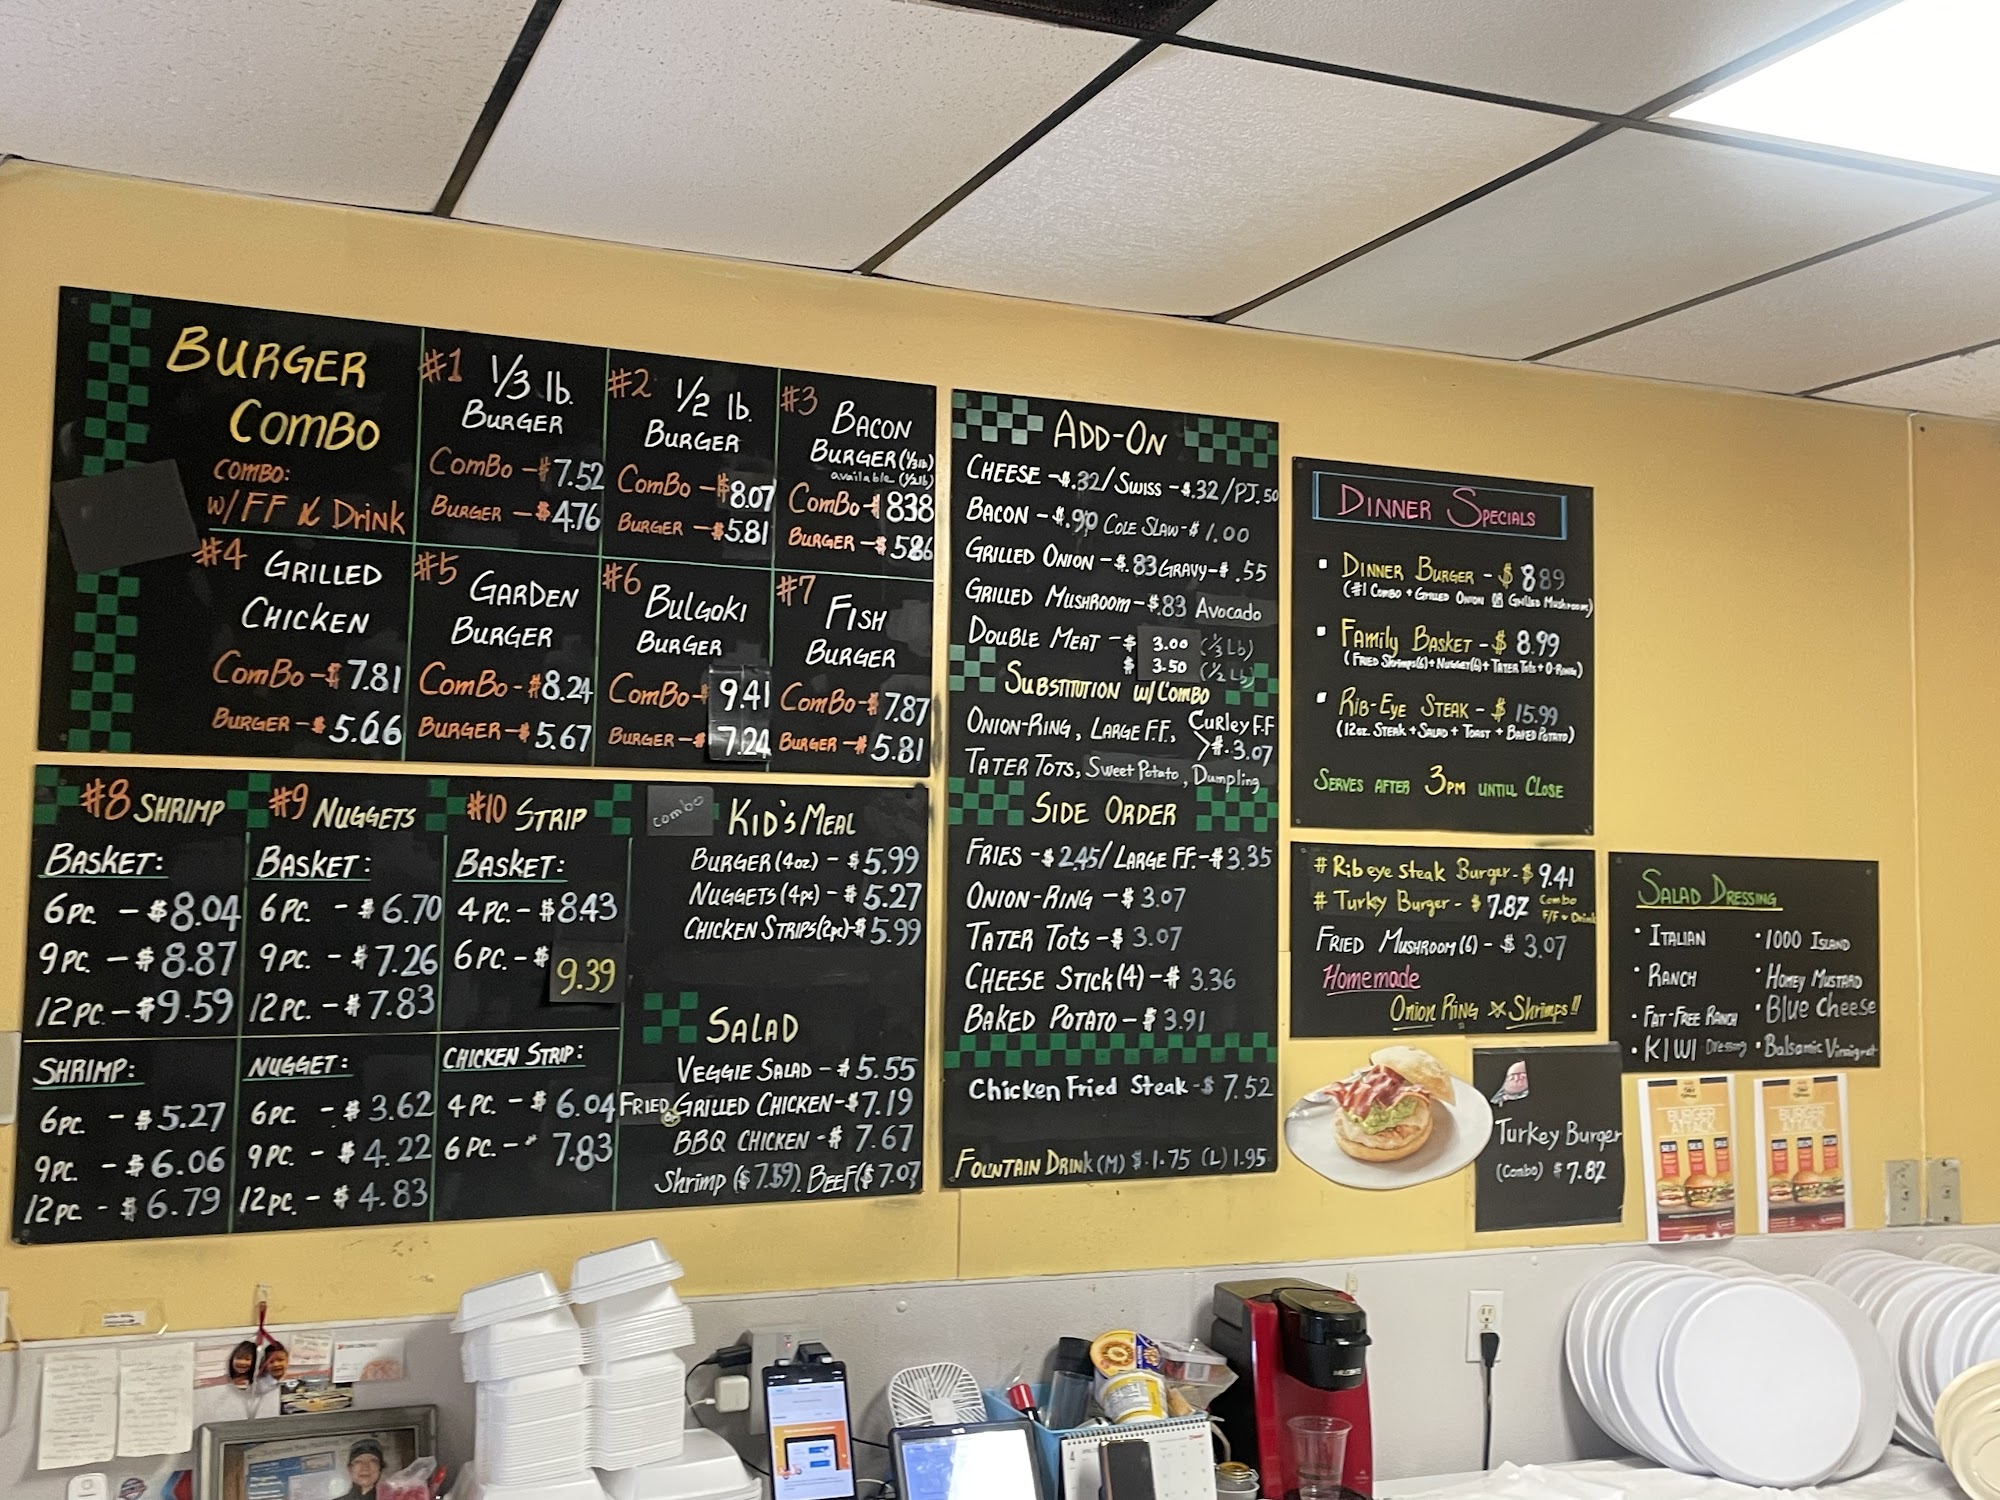 BURGER
COMBO
COMBO:
W/FF & Drink
#1 1/3 lb.
BURGER
COMBO - $7.52
BURGER - $4.76
#2 1/2 lb.
BURGER
COMBO - $8.07
BURGER - $5.81
#3 BACON
BURGER (1/3 lb)
available (1/2 lb)
COMBO - $8.38
BURGER - $5.86
#4 GRILLED
CHICKEN
COMBO - $7.81
BURGER - $5.66
#5 GARDEN
BURGER
COMBO - $8.24
BURGER - $5.67
#6 BULGOKI
BURGER
COMBO - $9.41
BURGER - $7.24
#7 FISH
BURGER
COMBO - $7.87
BURGER - $5.81
#8 SHRIMP
BASKET:
6PC. - $8.04
9PC. - $8.87
12PC - $9.59
SHRIMP:
6PC. - $5.27
9PC. - $6.06
12PC. - $6.79
#9 NUGGETS
BASKET:
6PC. - $6.70
9PC. - $7.26
12PC. - $7.83
NUGGET:
6PC. - $3.62
9PC. - $4.22
12PC. - $4.83
#10 STRIP
BASKET:
4PC. - $8.43
6PC. - $9.39
CHICKEN STRIP:
4PC. - $6.04
6PC. - 7.83
Combo KID'S MEAL
BURGER (4oz) - $5.99
NUGGETS (4pc) - $5.27
CHICKEN STRIPS (2pc) - $5.99
SALAD
VEGGIE SALAD - $5.55
FRIED or GRILLED CHICKEN - $7.19
BBQ CHICKEN - $7.67
Shrimp ($7.59), BEEF ($7.07
ADD-ON
CHEESE - $.32 / SWISS - $.32 / PJ .50
BACON - $.90 COLE SLAW - $1.00
GRILLED ONION - $.83 GRAVY - $.55
GRILLED MUSHROOM - $.83 Avocado
DOUBLE MEAT - $ 3.00 (1/3 Lb)
$ 3.50 (1/2 Lb)
SUBSTITUTION W/ COMBO
ONION-RING, LARGE F.F., CURLEY F.F
TATER TOTS, Sweet Potato, Dumpling > $.3.07
SIDE ORDER
FRIES - $2.45 / LARGE FF. - $3.35
ONION-RING - $3.07
TATER TOTS - $3.07
CHEESE STICK (4) - $3.36
BAKED POTATO - $3.91
Chicken Fried Steak - $7.52
FOUNTAIN DRINK (M) $.1.75 (L) 1.95
DINNER SPECIALS
DINNER BURGER - $8.89
(#1 COMBO + GRILLED ONION OR GRILLED MUSHROOM)
FAMILY BASKET - $8.99
(FRIED SHRIMPS(6) + NUGGET(6) + TATER TOTS + O-RING)
RIB-EYE STEAK - $15.99
(12oz. STEAK + SALAD + TOAST + BAKED POTATO)
SERVES AFTER 3PM UNTILL CLOSE
# Ribeye Steak Burger - $9.41
# Turky Burger - $7.82 Combo F/F & Drink
FRIED MUSHROOM (6) - $3.07
Homemade
Onion RING & Shrimps!!
SALAD DRESSING
• ITALIAN
• RANCH
• FAT-FREE RANCH
• KIWI Dressing
• 1000 ISLAND
• HONEY MUSTARD
• BLUE Cheese
• Balsamic Viniigret
Turkey Burger
(Combo) $7.82
BURGER
ATTACK
BURGER
ATTACK